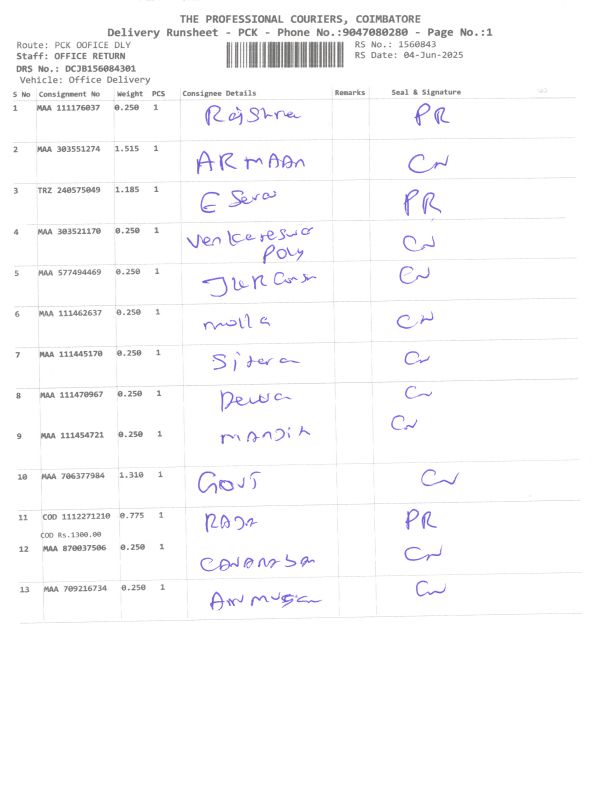 THE PROFESSIONAL COURIERS, COIMBATORE
Delivery Runsheet - PCK - Phone No.:9047080280 - Page No.:1
Route: PCK OOFICE DLY RS No.: 1560843
Staff: OFFICE RETURN RS Date: 04-Jun-2025
DRS No.: DCJB156084301
Vehicle: Office Delivery
S No Consignment No Weight PCS Consignee Details Remarks Seal & Signature
1 MAA 111176037 0.250 1 PR
2 MAA 303551274 1.515 1 ARMAAN CN
3 TRZ 240575049 1.185 1 E Seva PR
4 MAA 303521170 0.250 1 CN
Poly
5 MAA 577494469 0.250 1 CN
6 MAA 111462637 0.250 1 molla CN
7 MAA 111445170 0.250 1 Sitara CN
8 MAA 111470967 0.250 1 Dewa CN
9 MAA 111454721 0.250 1 CN
10 MAA 706377984 1.310 1 GOVT CN
11 COD 1112271210 0.775 1 PR
COD Rs.1300.00
12 MAA 870037506 0.250 1 CN
13 MAA 709216734 0.250 1 CN